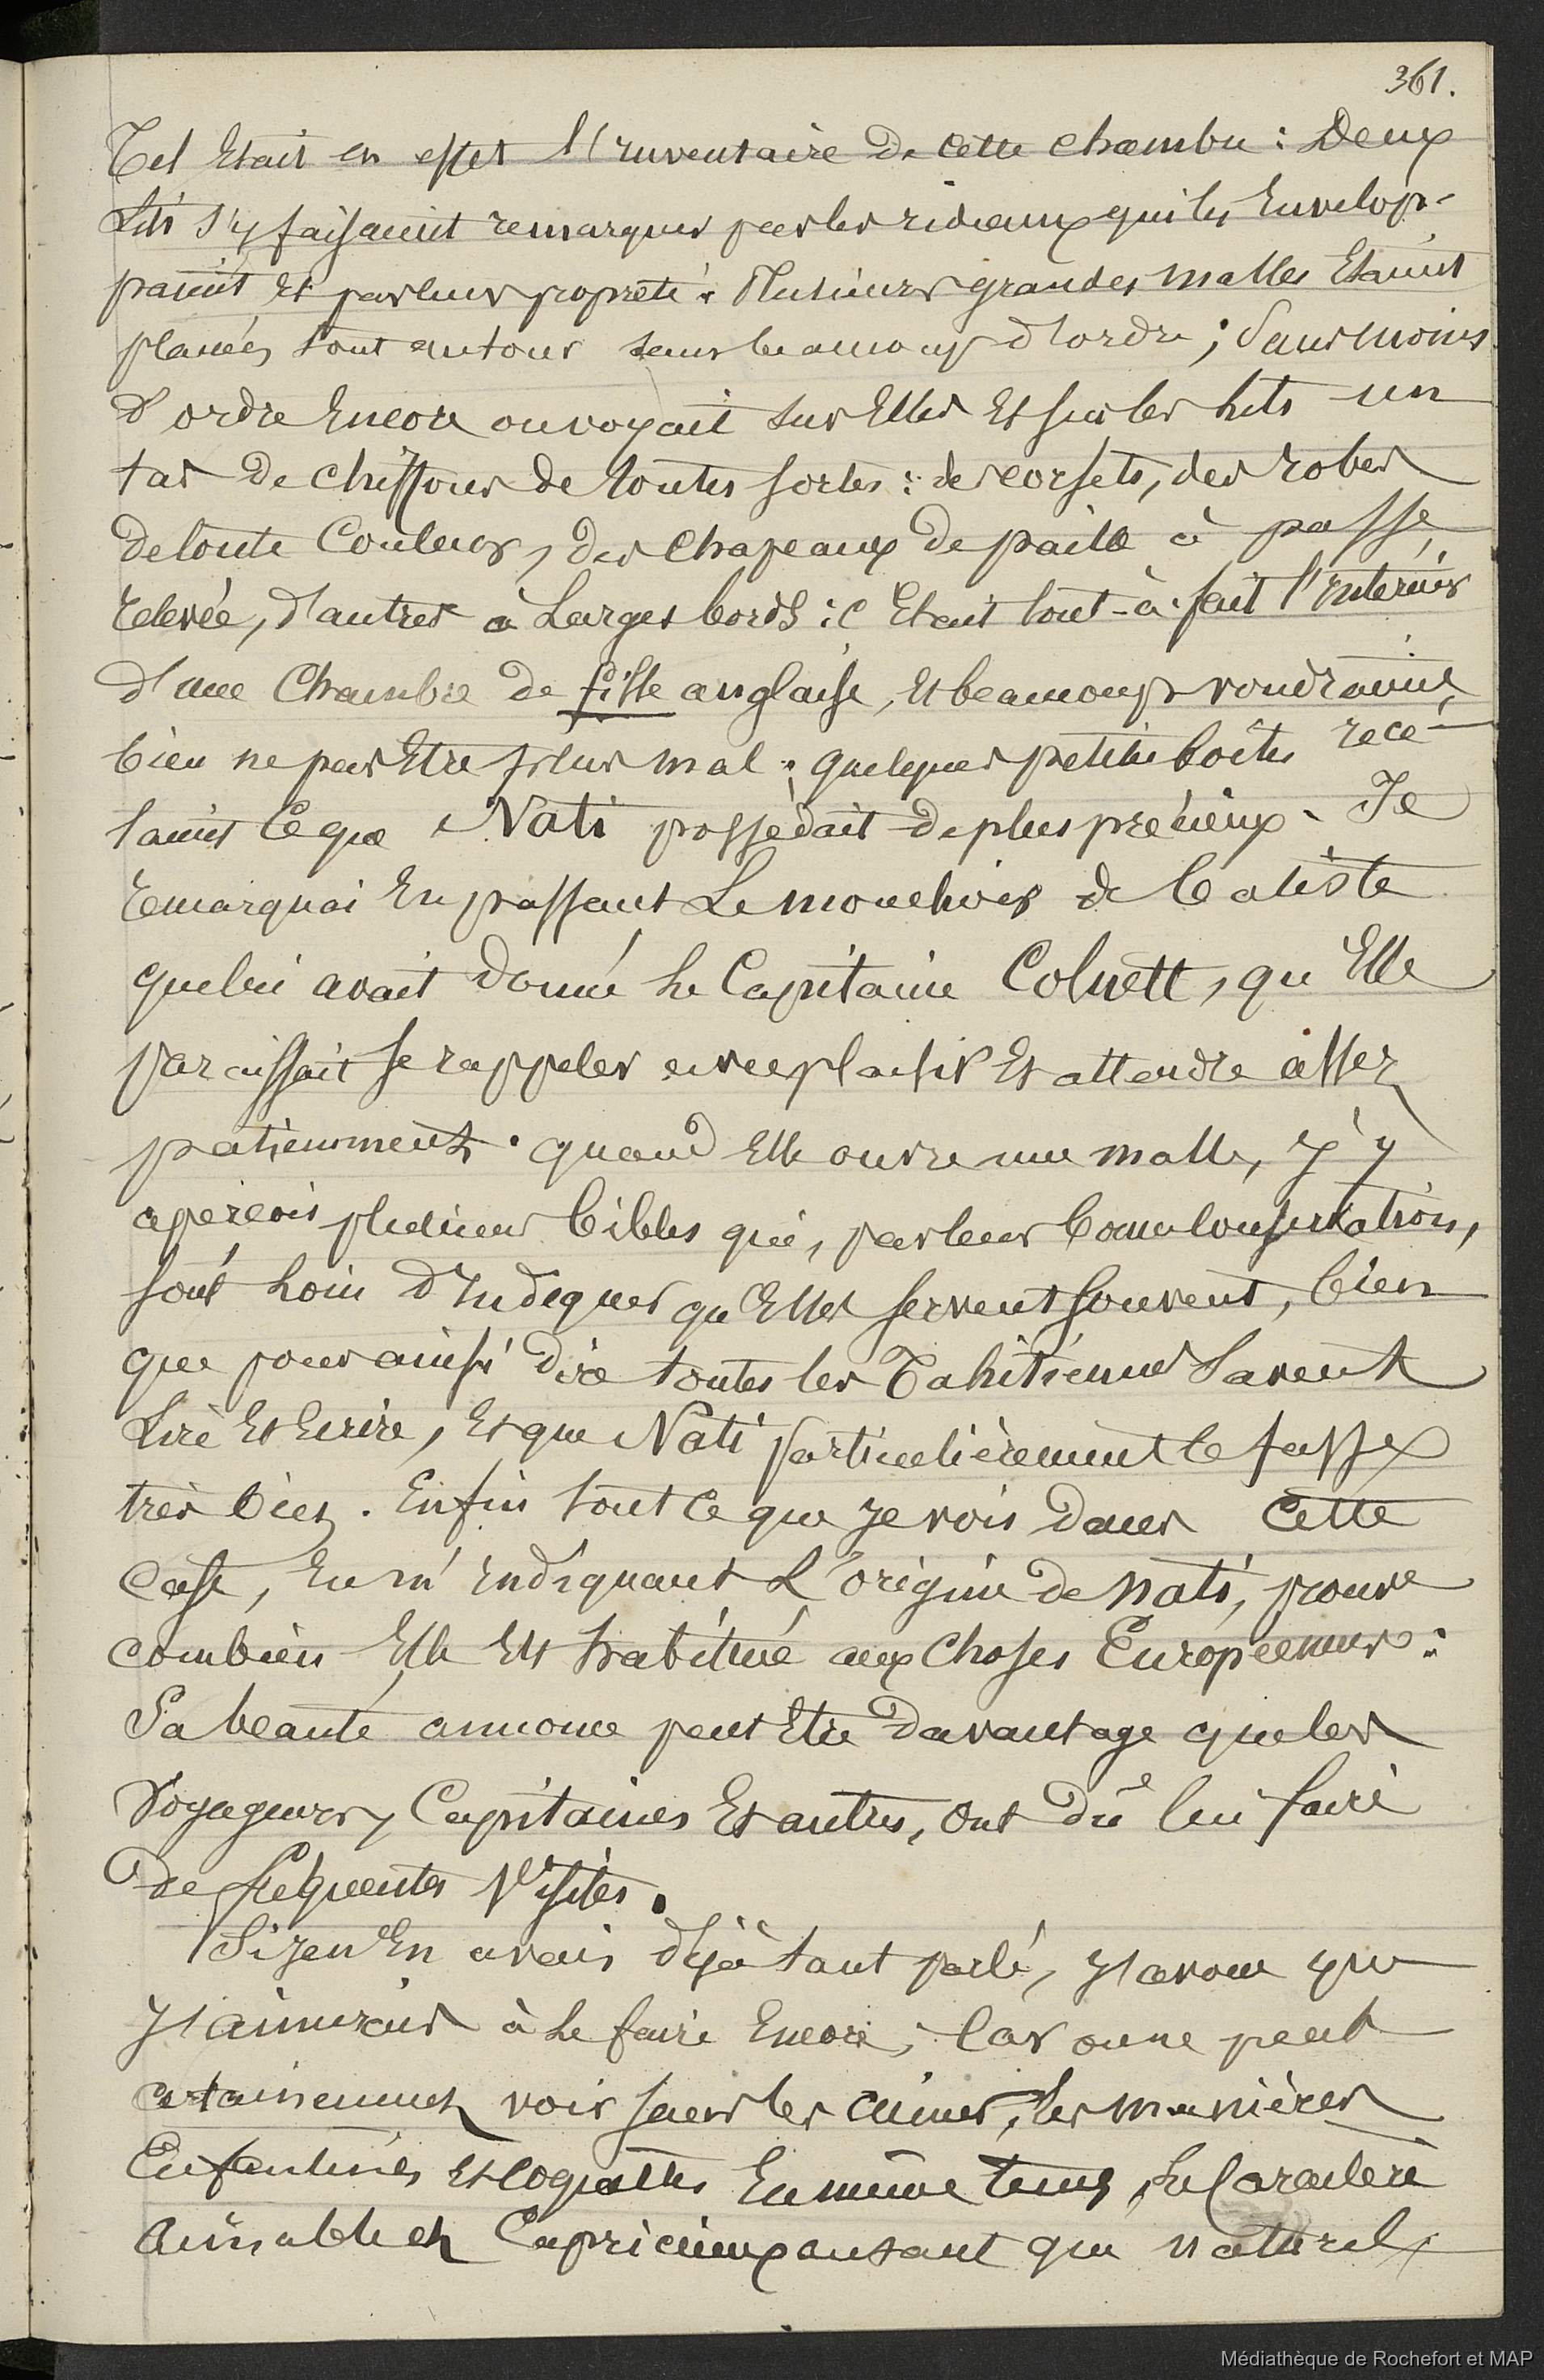 361.
Tel Etait en effet l'Inventaire de cette chambre : Deux
Lits s'y faisaient remarquer par les rideaux qui les Envelop-
paient et par leur propreté. Plusieurs grandes malles Etaient
placées tout autour sans beaucoup d'ordre ; Sans moins
d'ordre Encore on voyait sur Elles Et sur les lits un
tas de chiffons de toutes sortes : des corsets, des robes
de toute Couleur, des Chapeaux de paille à passe
relevée, d'autres à Larges bords : c'Etait tout-à-fait l'Intérieur
d'une Chambre de fille anglaise, et beaucoup voudraient
bien ne pas Etre plus mal ; quelques petites boîtes recé-
laient Ce que Nati possédait de plus précieux. Je
remarquai En passant Le mouchoir de Batiste
que lui avait donné Le Capitaine Colnett, qu'Elle
paraissait se rappeler avec plaisir Et attendre assez
patiemment. quand Elle ouvre une malle, j'y
aperçois plusieurs bibles qui, par leur bonne conservation,
sont Loin d'Indiquer qu'Elles servent souvent, bien
que pour ainsi dire toutes les Tahitiennes Savent
Lire Et Ecrire, Et que Nati particulièrement le fasse
très bien. Enfin tout Ce que je vois dans Cette
Case, En m'Indiquant L'origine de Nati, prouve
combien Elle Est habitué aux Choses Européennes :
Sa beauté annonce peut Etre davantage que les
Voyageurs, Capitaines Et autres, ont dû lui faire
de fréquentes Visites.
Si j'en En avais déjà tant parlé, j'avoue que
j'aimerais à Le faire Encore, Car on ne peut
certainement voir sans les aimer, Les manières
Enfantines Et Coquettes En même tems, Le Caractère
Aimable et Capricieux autant que naturel